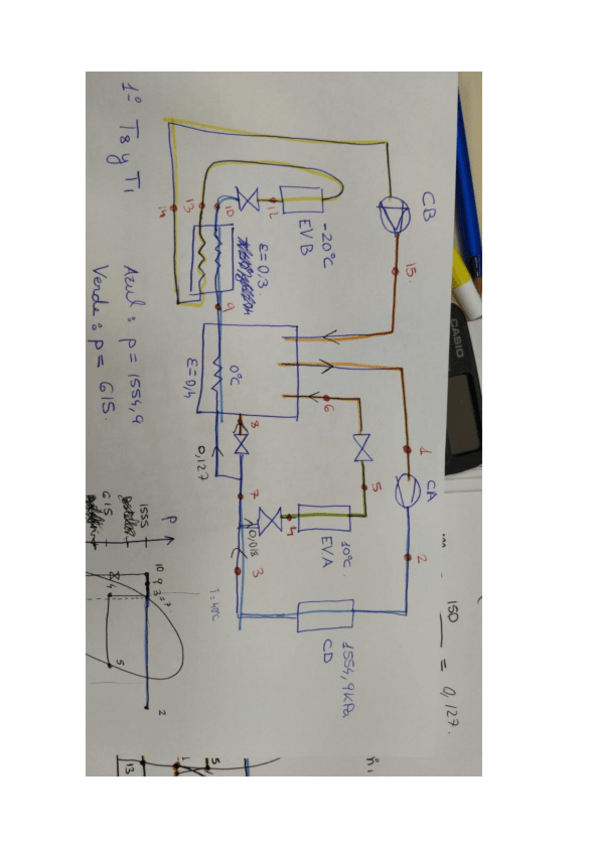 1º T8 y T1
Azul: p = 1554,9
Verde: p = 615.
CB
15.
14
13
10
12
EVB
-20°C
ε=0,3
9
0°C
ε=0,4
8
6
1
CA
0,127
7
5
4
EVA
10°C
0,018
3
2
CD
1554,9 KPa
150
= 0,127.
CASIO
P
1555
615
10
9
3=7
8
4
5
2
13
1
5